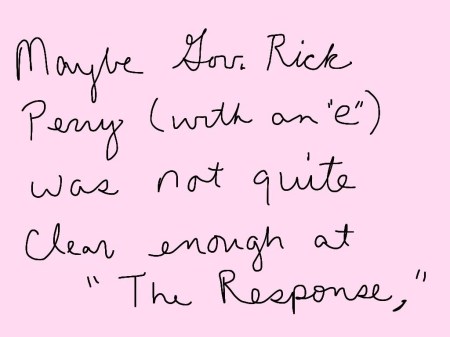 Maybe Gov. Rick
Perry (with an "e")
was not quite
clear enough at
"The Response,"